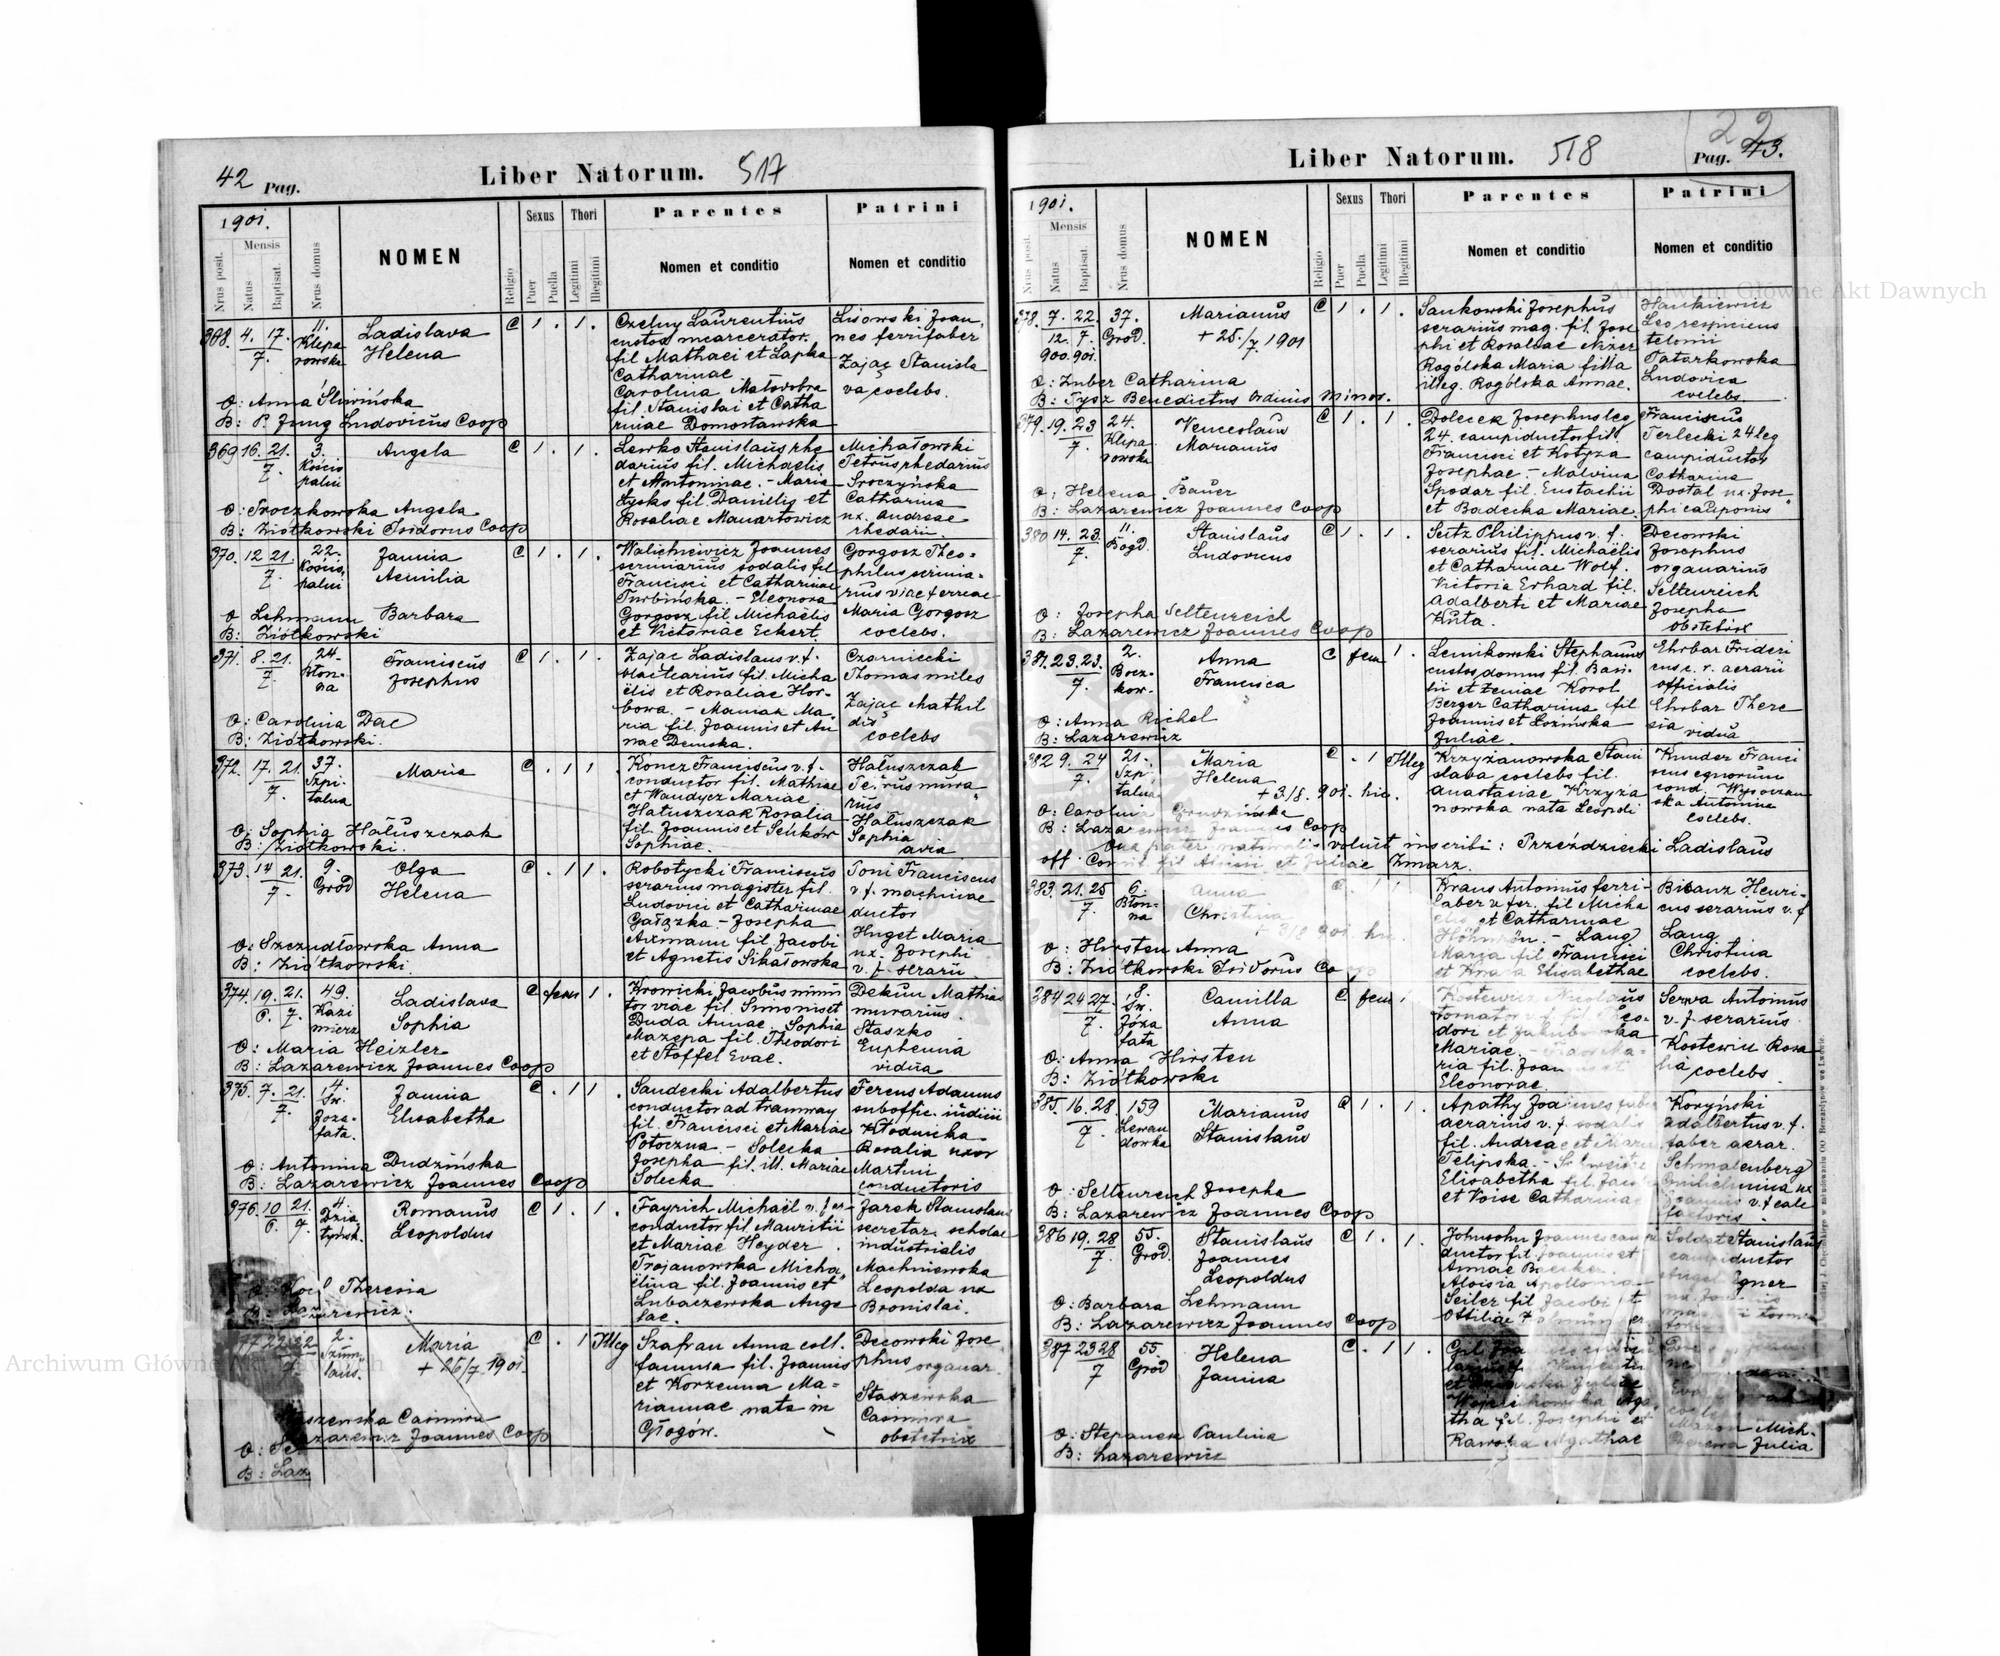 42 Pag.
Liber Natorum.
517
1901.
Nrus posit.
Mensis
Natus
Baptisat.
Nrus domus
NOMEN
Religio
Sexus
Puer
Puella
Thori
Legitimi
Illegitimi
Parentes
Nomen et conditio
Patrini
Nomen et conditio
368. 4. 17. 11. Ladislava C 1 . 1 . Czelny Laurentius Lisowski Joan
7. Klepa Helena custos incarcerator. nes ferrifaber
rowska fil Mathaei et Lapka Zając Stanisla
Catharinae va coelebs.
Carolina Małodobra
O: Anna Śliwińska fil. Stanislai et Catha
B: P. Jung Ludovicus Coop rinae Domosławska
369 16. 21. 3. Angela C 1 . 1 . Lewko Stanislaus rhe Michałowski
7. Kościo darius fil. Michaelis Petrus rhedarius
palni et Antoninae. - Maria Sroczyńska
Lysko fil. Danillis et Catharina
O: Sroczkowska Angela Rosaliae Manartowicz ux. Andreae
B: Ziółkowski Isidorus Coop rhedarii.
370. 12 21. 22. Janina C 1 . 1 . Walichiewicz Joannes Gorgosz Theo-
7. Kościo Aemilia scriniarius sodalis fil philus scrinia-
palni Francisci et Catharinae rius viae ferreae
Turbińska. - Eleonora Maria Gorgosz
O Lehmann Barbara Gorgosz fil. Michaëlis coelebs.
B: Ziółkowski et Victoriae Eckert.
371. 8. 21. 24. Franciscus C 1 . 1 . Zając Ladislaus v. f. Czarniecki
7. Błon- Josephus olactearius fil. Micha Thomas miles
na ëlis et Rosaliae Hor- Zając Mathil
bowa. - Maniak Ma dis
O: Carolina Dac ria fil. Joannis et An coelebs
B: Ziółkowski. nae Demska.
372. 17. 21. 37. Maria C . 1 1 . Koncz Franciscus v. f. Hałuszczak
7. Szpi conductor fil. Mathiae Petrus mura
talna et Wandycz Mariae rius
Hałuszczak Rosalia Hałuszczak
O: Sophia Hałuszczak fil. Joannis et Seńków Sophia
B: Ziółkowski. Sophiae. avia
373. 14 21. 9. Olga C . 1 1 Robotycki Franciscus Toni Franciscus
7. Gród Helena serarius magister fil. v. f. machinae
Ludovici et Catharinae ductor
Gałązka - Josepha Huget Maria
O: Szczudławska Anna Axmann fil. Jacobi ux. Josephi
B: Ziółkowski. et Agnetis Sikałowska v. f. serarii
374. 19. 21. 49. Ladislava C fem 1 . Kronicki Jacobus muni Dekun Mathias
6. 7. Kazi Sophia tor viae fil. Simonis et murarius.
mierz Duda Annae. Sophia Staszko
O: Maria Heizler Mazepa fil. Theodori Euphemia
B: Lazarewicz Joannes Coop et Stoffel Evae. vidua
375. 7. 21. 4. Janina C . 1 1 . Sandecki Adalbertus Ferens Adamus
7. Św. Elisabetha conductor ad tramway suboffic. iudicii
Joza- fil. Francisci et Mariae Kłodnicka
fata. Potoczna - Solecka Rosalia uxor
O: Antonina Dudzińska Josepha fil. ill. Mariae Martini
B: Lazarewicz Joannes Coop Solecka conductoris
376. 10 21. 4. Romanus C 1 . 1 . Fayrich Michaël v. fer- Jarek Stanislaus
6. 7. Dzia Leopoldus conductor fil. Mauritii secretar. scholae
tyńsk. et Mariae Heyder. industrialis
Trojanowska Micha Machniewska
O: Theresia ëlina fil. Joannis et Leopolda ux
B: Lazarewicz. Lubaczewska Ange Bronislai.
lae.
77 22. 22 2. Maria C . 1 Illeg Szafran Anna coll. Decowski Jose
7. Szum + 26/7 1901. famula fil. Joannis phus organar.
lańs. et Korzenna Ma= Staszewska
riannae nata in Casimira
szewska Casimira Głogów. obstetrix
Lazarewicz Joannes Coop
B: Laz
Liber Natorum.
518
22
Pag. 43.
1901.
Nrus posit.
Mensis
Natus
Baptisat.
Nrus domus
NOMEN
Religio
Sexus
Puer
Puella
Thori
Legitimi
Illegitimi
Parentes
Nomen et conditio
Patrini
Nomen et conditio
378. 7. 22. 37. Marianus C 1 . 1 . Sankowski Josephus Hankiewicz
12. 7. Gród. + 25./7 1901 serarius mag. fil. Jose Leo respiciens
900. 901. phi et Rosaliae Nizer telonii
Rogólska Maria filia Tatarkowska
O: Zuber Catharina illeg. Rogólska Annae. Ludovica
B: Tysz Benedictus Ordinis Minor. coelebs.
379. 19. 23 24. Venceslaus C 1 . 1 . Dolecek Josephus leg Franciscus
7. Klepa Marianus 24. campiductor fil. Terlecki 24 leg
rowska Francisci et Kotyza campiductor
Josephae. - Malvina Catharina
O: Helena Bauer Spodar fil. Eustachii Dostal ux. Jose
B: Lazarewicz Joannes Coop et Badecka Mariae. phi cauponis
380 14. 23. 11. Stanislaus C 1 . 1 . Seitz Philippus v. f. Decowski
7. Bogd. Ludovicus serarius fil. Michaëlis Josephus
et Catharinae Wolf. organarius
Victoria Erhard fil. Seltenreich
O: Josepha Seltenreich Adalberti et Mariae Josepha
B: Lazarewicz Joannes Coop Kuta. obstetrix
381. 23. 23. 2. Anna C fem 1 . Lemikowski Stephanus Ehrbar Frideri
7. Bocz- Francisca custos domus fil. Basi- cus c. r. aerarii
kow. lii et Xeniae Korol officialis
Berger Catharina fil. Ehrbar There
O: Anna Richel Joannis et Łozińska sia vidua
B: Lazarewicz Juliae.
382 9. 24 21. Maria C . 1 Illeg Krzyżanowska Stani Kunder Franci
7. Szpi Helena slava coelebs fil. scus equorum
talna + 31/8. 901. hic. Anastasiae Krzyża cond. Wysoczan
O: Carolina Grudzińska nowska nata Leopoli ska Antonina
B: Lazarewicz Joannes Coop coelebs.
Qua pater naturalis voluit inscribi: Przeździecki Ladislaus
off. fil Aloisii et Juliae Zmarz.
383. 21. 25 6. Anna C . 1 1 Kraus Antonius ferri- Bisanz Henri-
7. Błon- Christina faber v. fer. fil Micha cus serarius v. f
na + 3/8 901 hic. elis et Catharinae Lang
Höhn - Lang Christina
O: Hirsten Anna Maria fil Francisci coelebs.
B: Ziółkowski Isidorus Coop et Elisabethae
384 24 27. 8. Camilla C fem 1 Kostewicz Nicolaus Serwa Antonius
7. Św. Anna tornator v. f. fil. Theo- v. f. serarius
Józa dori et Jakubowska Kostewicz Rosa
fata Mariae lia coelebs.
O: Anna Hirsten ria fil. Joannis et
B: Ziółkowski Eleonorae.
385. 16. 28. 159 Marianus C 1 . 1 . Apathy Joannes faber Koryński
7. Lewan Stanislaus aerarius v. f. sodalis Adalbertus v. f.
dówka fil. Andreae et Mariae faber aerar.
Telipska. Schmalenberg
O: Seltenreich Josepha Elisabetha fil. Jacobi Guilielmina ux
B: Lazarewicz Joannes Coop et Voise Catharinae Joannis v. f. cale
factoris.
386 19. 28 55. Stanislaus C 1 . 1 . Johnsohn Joannes cam Soldat Stanislaus
7. Gród Joannes ductor fil. Joannis et campiductor
Leopoldus Annae Baecker.
Aloisia Apollonia
O: Barbara Lehmann Seiler fil Jacobi et
B: Lazarewicz Joannes Coop Ottiliae
387 23 28 55. Helena C . 1 1 . Gil
7 Gród Janina
Wojciechowska Aga-
O: Stepanek Paulina tha fil. Josephi et Mazon Mich-
B: Lazarewicz Rawska Agathae Julia
Archiwum Główne Akt Dawnych
Archiwum Główne Akt Dawnych